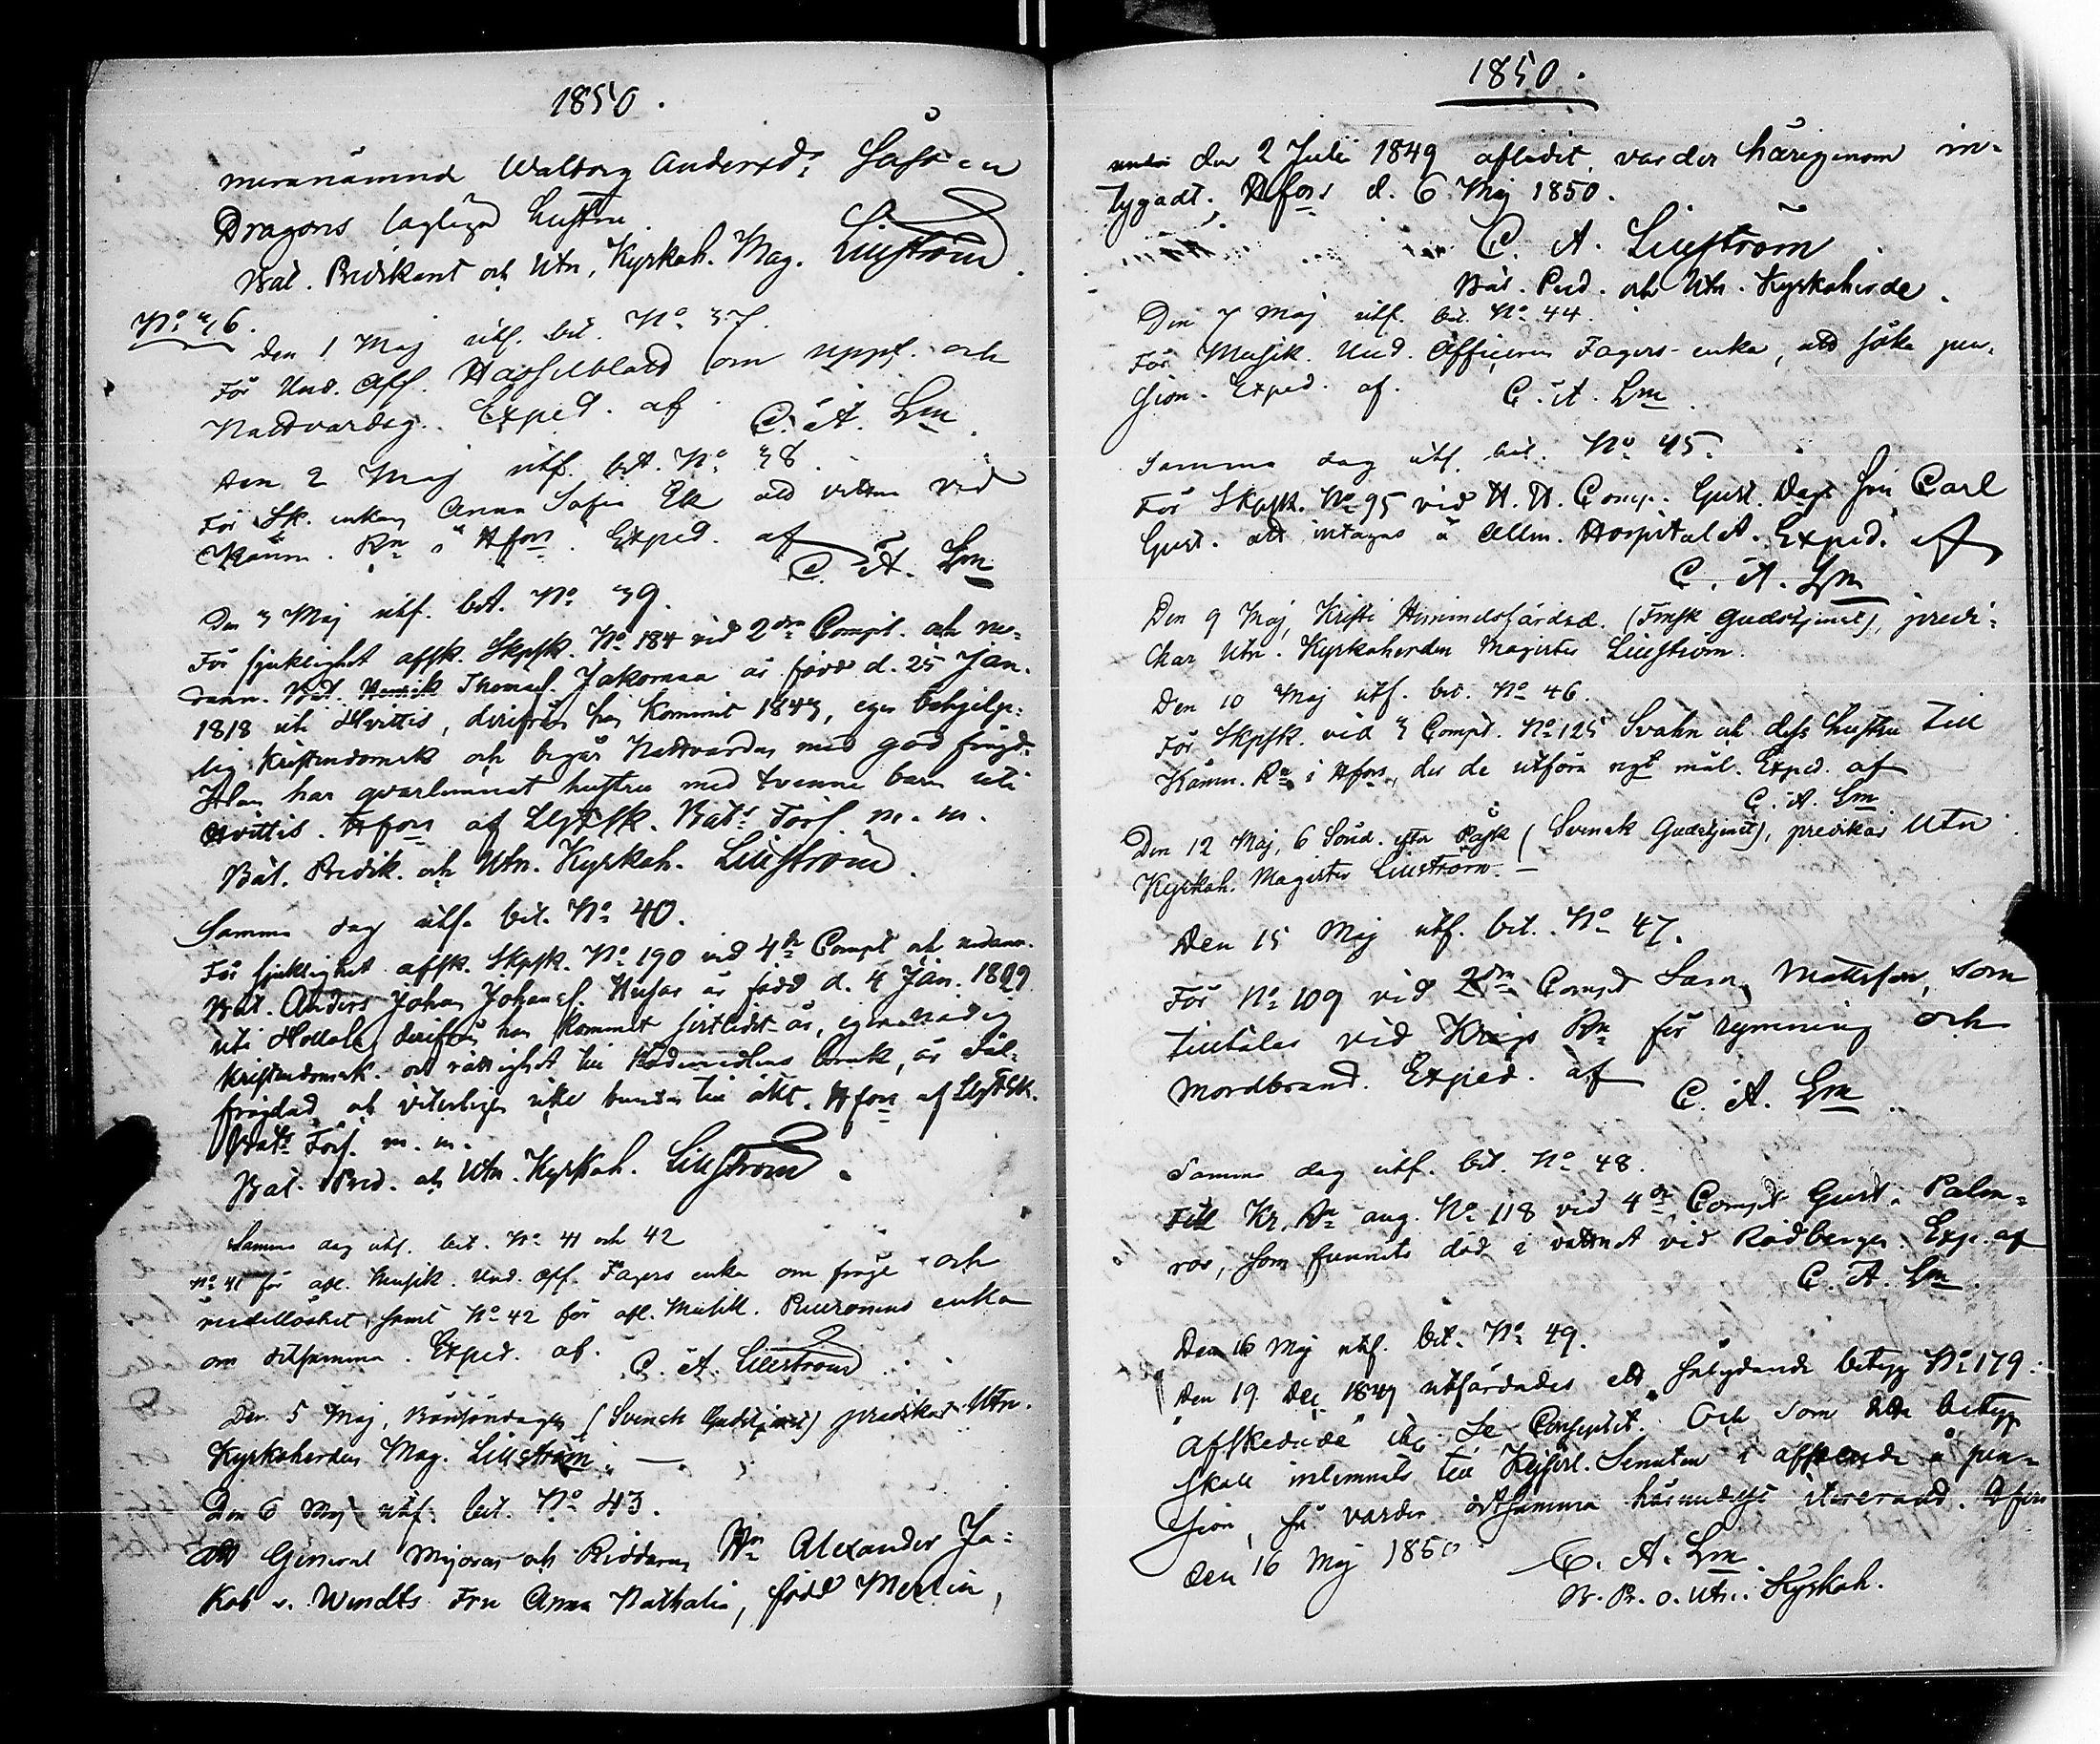 1850.
meranämnd Walborg Andersdr
Dragons lagliga hustru.
Bat. Predikant och Utn. Kyrkoh. Mag. Lilljström.
No 36.
Den 1 Maj utf. bet. No 37.
För Und. Off. Hasselblatt om uppf. och
Nattvardsg. Exped. af C. A. Lm.
Den 2 Maj utf. bet. No 38.
För Sk. enkan Anna Sofia Ek att vittna vid
Kämn. Rn i Hfors. Exped. af
C. A. Lm
Den 3 Maj utf. bet. No 39.
För sjuklighet afsk. Skpsk. No 184 vid 2dra Compt. och me-
dann. Bat. Henrik Thomasf. Jakomaa är född d. 25 Jan.
1818 uti Hvittis, derifrån han kommit 1843, eger behjelp-
lig Kristendomsk. och begår Nattvarden med god frejd.
Han har qvarlemnat hustru med tvenne barn uti
Hvittis. Hfors af Lif Fsk. Bats Förs. m. m.
Bat. Predik. och Utn. Kyrkoh. Lilljström.
Samma dag utf. bet. No 40.
För sjuklighet afsk. Skpsk. No 190 vid 4de Compt och nedann.
Bat. Anders Johan Johansf. Husar är född d. 4 Jan. 1829
uti Hollola, derifrån han kommit sistledit år, eger nödig
Kristendomsk. och rättighet till Nådemedlens bruk, är väl-
frejdad och veterligen icke bunden till äkt. Hfors af Lif Fsk.
Bats Förs. m. m.
Bat. Pred. och Utn. Kyrkoh. Lilljström.
Samma dag utf. bet. No 41 och 42
No 41 för afl. Musik. Und. Off. Fagers enka om frejd och
medellöshet, samt No 42 för afl. Musik. enka
om detsamma. Exped. af. C. A. Lilljström.
Den 5 Maj, Bönsöndagen (Svensk Gudstjenst) predikar Utn.
Kyrkoherden Mag. Lilljström. —
Den 6 Maj utf. bet. No 43.
Att General Majoren och Riddaren Hn Alexander Ja-
kob v. Wendts Fru Anna Nathalia, född Merlin,
1850.
den 2 Juli 1849 aflidit, varder härigenom in-
tygadt. Hfors d. 6 Maj 1850.
C. A. Lilljström
Bat. Pred. och Utn. Kyrkoherde.
Den 7 Maj utf. bet. No 44.
För Musik. Und. Officeren Fagers enka, att söka pen-
sion. Exped. af. C. A. Lm.
Samma dag utf. bet. No 45.
För Skpsk. No 95 vid H. H. Comp. Gust. Dags son Carl
Gust. att intagas å Allm. Hospitalet. Exped. af
C. A. Lm
Den 9 Maj, Kristi Himmelsfärdsd. (Finsk Gudstjenst), predi-
kar Utn. Kyrkoherden Magister Lilljström.
Den 10 Maj utf. bet. No 46.
För Skpsk. vid 3 Compt. No 125 Svahn och dess hustru till
Kämn. Rn i Hfors, der de utföra ngt mål. Exped. af
C. A. Lm
Den 12 Maj, 6 Sönd. efter Påsk (Svensk Gudstjenst), predikar Utn
Kyrkoh. Magister Lilljström. —
Den 15 Maj utf. bet. No 47.
För No 109 vid 2dra Compt Mattsson, som
tilltalas vid Krigs Rn för rymning och
mordbrand. Exped. af C. A. Lm.
Samma dag utf. bet. No 48.
Till Kr. Rn ang. No 118 vid 4de Compt Gust. Palm-
ros, som funnits död i vattnet vid Rödbergen. Exp. af
C. A. Lm.
Den 16 Maj utf. bet. No 49.
Den 19 Dec. 1849 utfärdades ett sålydande betyg No 179:
"Afskedade" etc. Se Conceptet. Och som detta betyg
skall inlemnats till Kejserl. Senaten i afseende å pen-
sion, så varder detsamma härmedelst itererad. Hfors
den 16 Maj 1850. C. A. Lm
B. Pr. o. Utn. Kyrkoh.